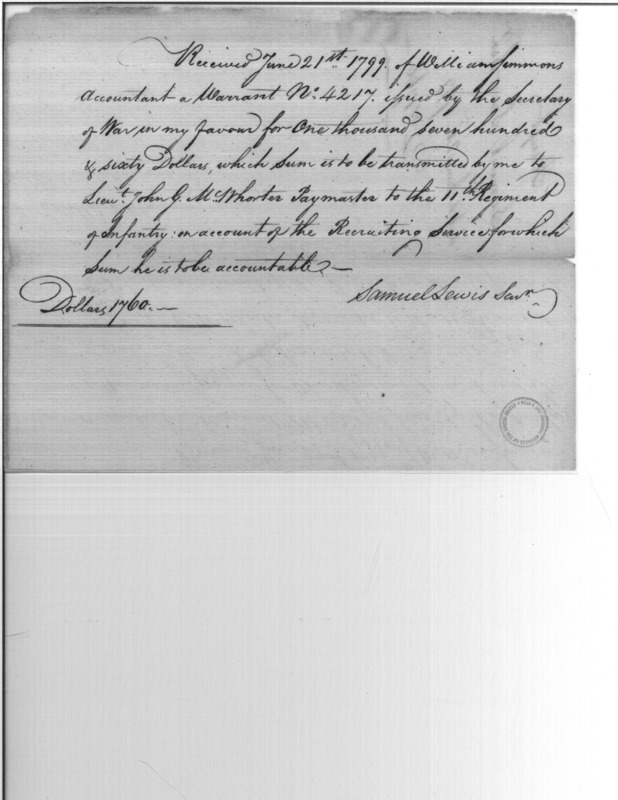 Received June 21st. 1799. of William Simmons
Accountant a Warrant No. 4217. issued by the Secretary
of War, in my favour for One thousand Seven hundred
& sixty Dollars, which Sum is to be transmitted by me to
Lieut. John G. McWhorter Paymaster to the 11th. Regiment
of Infantry: on account of the Recruiting Service for which
Sum he is to be accountable. —
Samuel Lewis Senr.
Dollars 1760. —